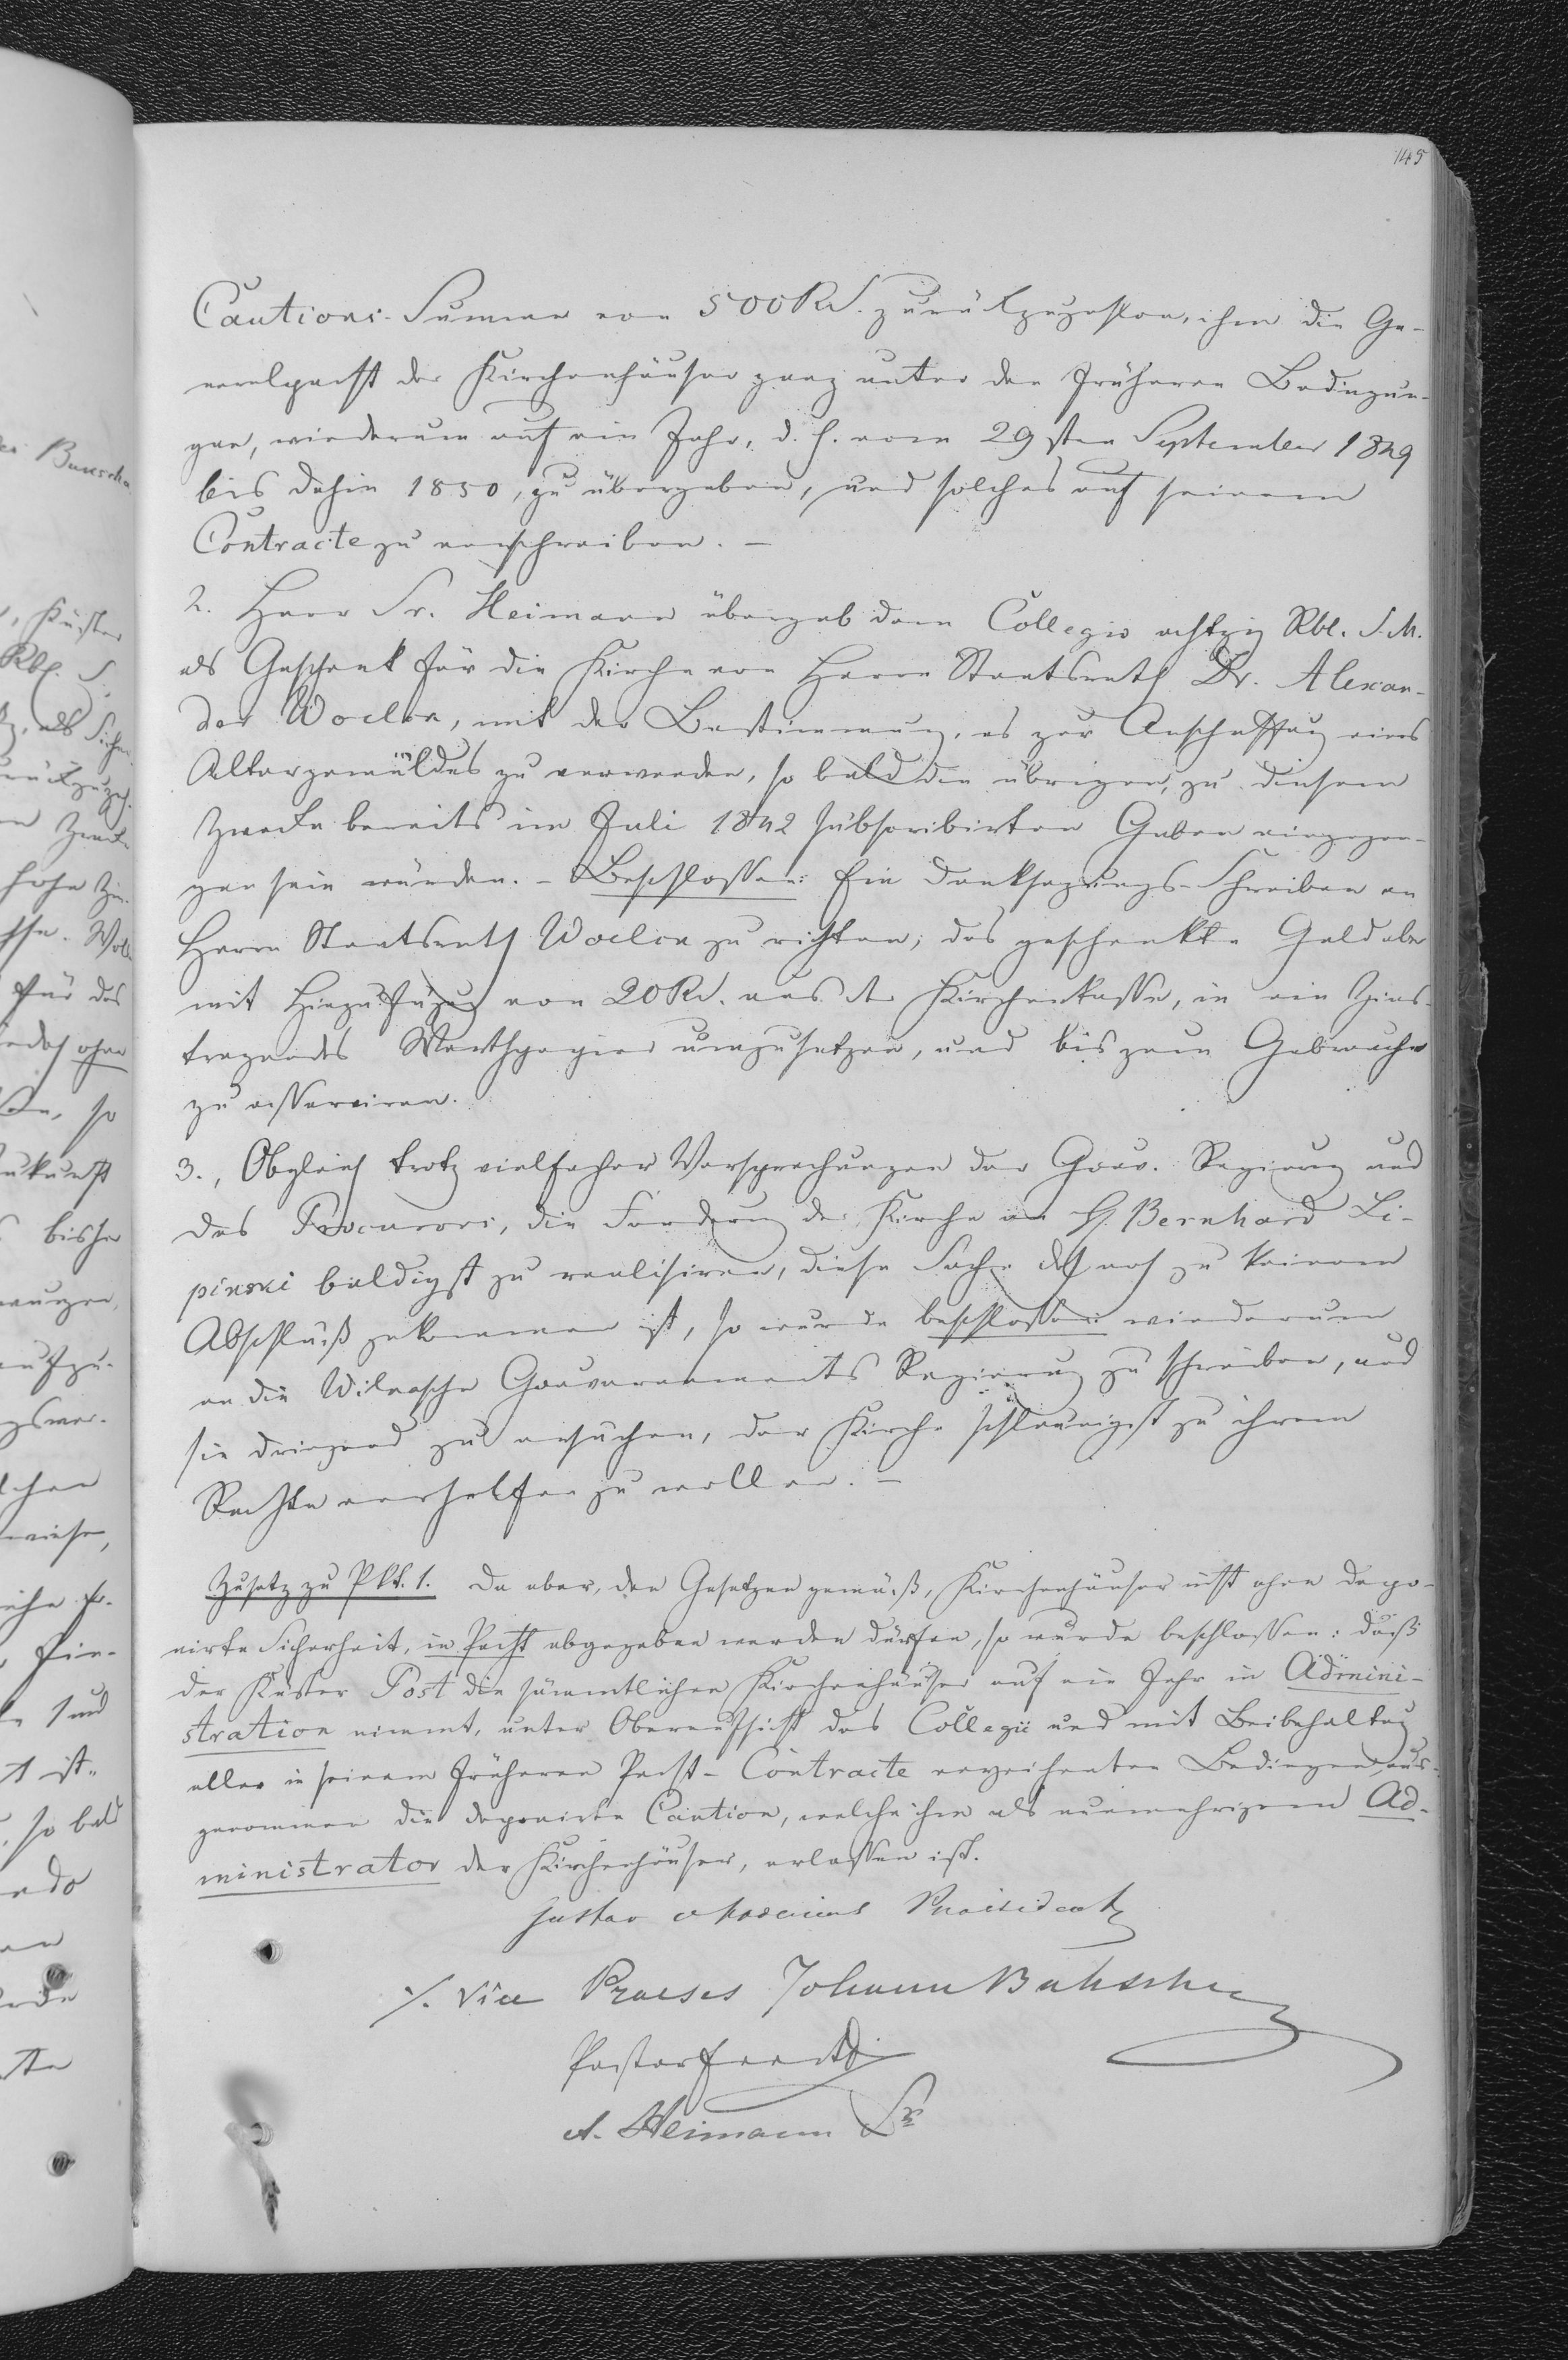 145
Cautions-Summe von 500 Rs. zurükzuzahlen, ihm die Ge-
neralpacht der Kirchenhäuser ganz unter den früheren Bedingun-
gen, wiederum auf ein Jahr, d. h. vom 29sten September 1849
bis dahin 1850, zu übergeben, und solches auf seinem
Contracte zu verschreiben. —
2. Herr Sr. Heimann übergab dem Collegio achtzig Rbl. S. M.
als Geschenk für die Kirche von Herrn Staatsrath Dr. Alexan-
der Woelck, mit der Bestimmung, es zur Anschaffung eines
Altargemäldes zu verwenden, so bald die übrigen, zu diesem
Zwecke bereits im Juli 1842 subscribirten Gaben eingegan-
gen sein würden. – Beschlossen: Ein Danksagungs-Schreiben an
Herrn Staatsrath Woelck zu richten; das geschenkte Geld aber
mit Hinzufügung von 20 Rs. aus der Kirchenkasse, in ein Zins-
tragendes Werthpapier umzusetzen, und bis zum Gebrauche
zu asserviren.
3., Obgleich trotz vielfacher Versprechungen der Gouv. Regierung und
des Procurors, die Forderung der Kirche an H. Bernhard Li-
pinski baldigst zu realisiren, diese Sache doch noch zu keinem
Abschluß gekommen ist, so wurde beschlossen: wiederum
an die Wilnasche Gouvernements Regierung zu schreiben, und
sie dringend zu ersuchen, der Kirche schleunigst zu ihrem
Rechte verhelfen zu wollen. —
Zusatz zu Pkt. 1. Da aber, den Gesetzen gemäß, Kirchenhäuser nicht ohne depo-
nirte Sicherheit, in Pacht abgegeben werden dürfen, so wurde beschlossen: daß
der Küster Post die sämmtlichen Kirchenhäuser auf ein Jahr in Admini-
stration nimmt, unter Oberaufsicht des Collegii und mit Beibehaltung
aller in seinem früheren Pacht-Contracte verzeichneten Bedingungen, aus-
genommen die deponirte Caution, welche ihm als nunmehrigem Ad-
ministrator der Kirchenhäuser, erlassen ist.
Gustav Praesident
Vice Praeses Johann
Pastor
A. Heimann Sr